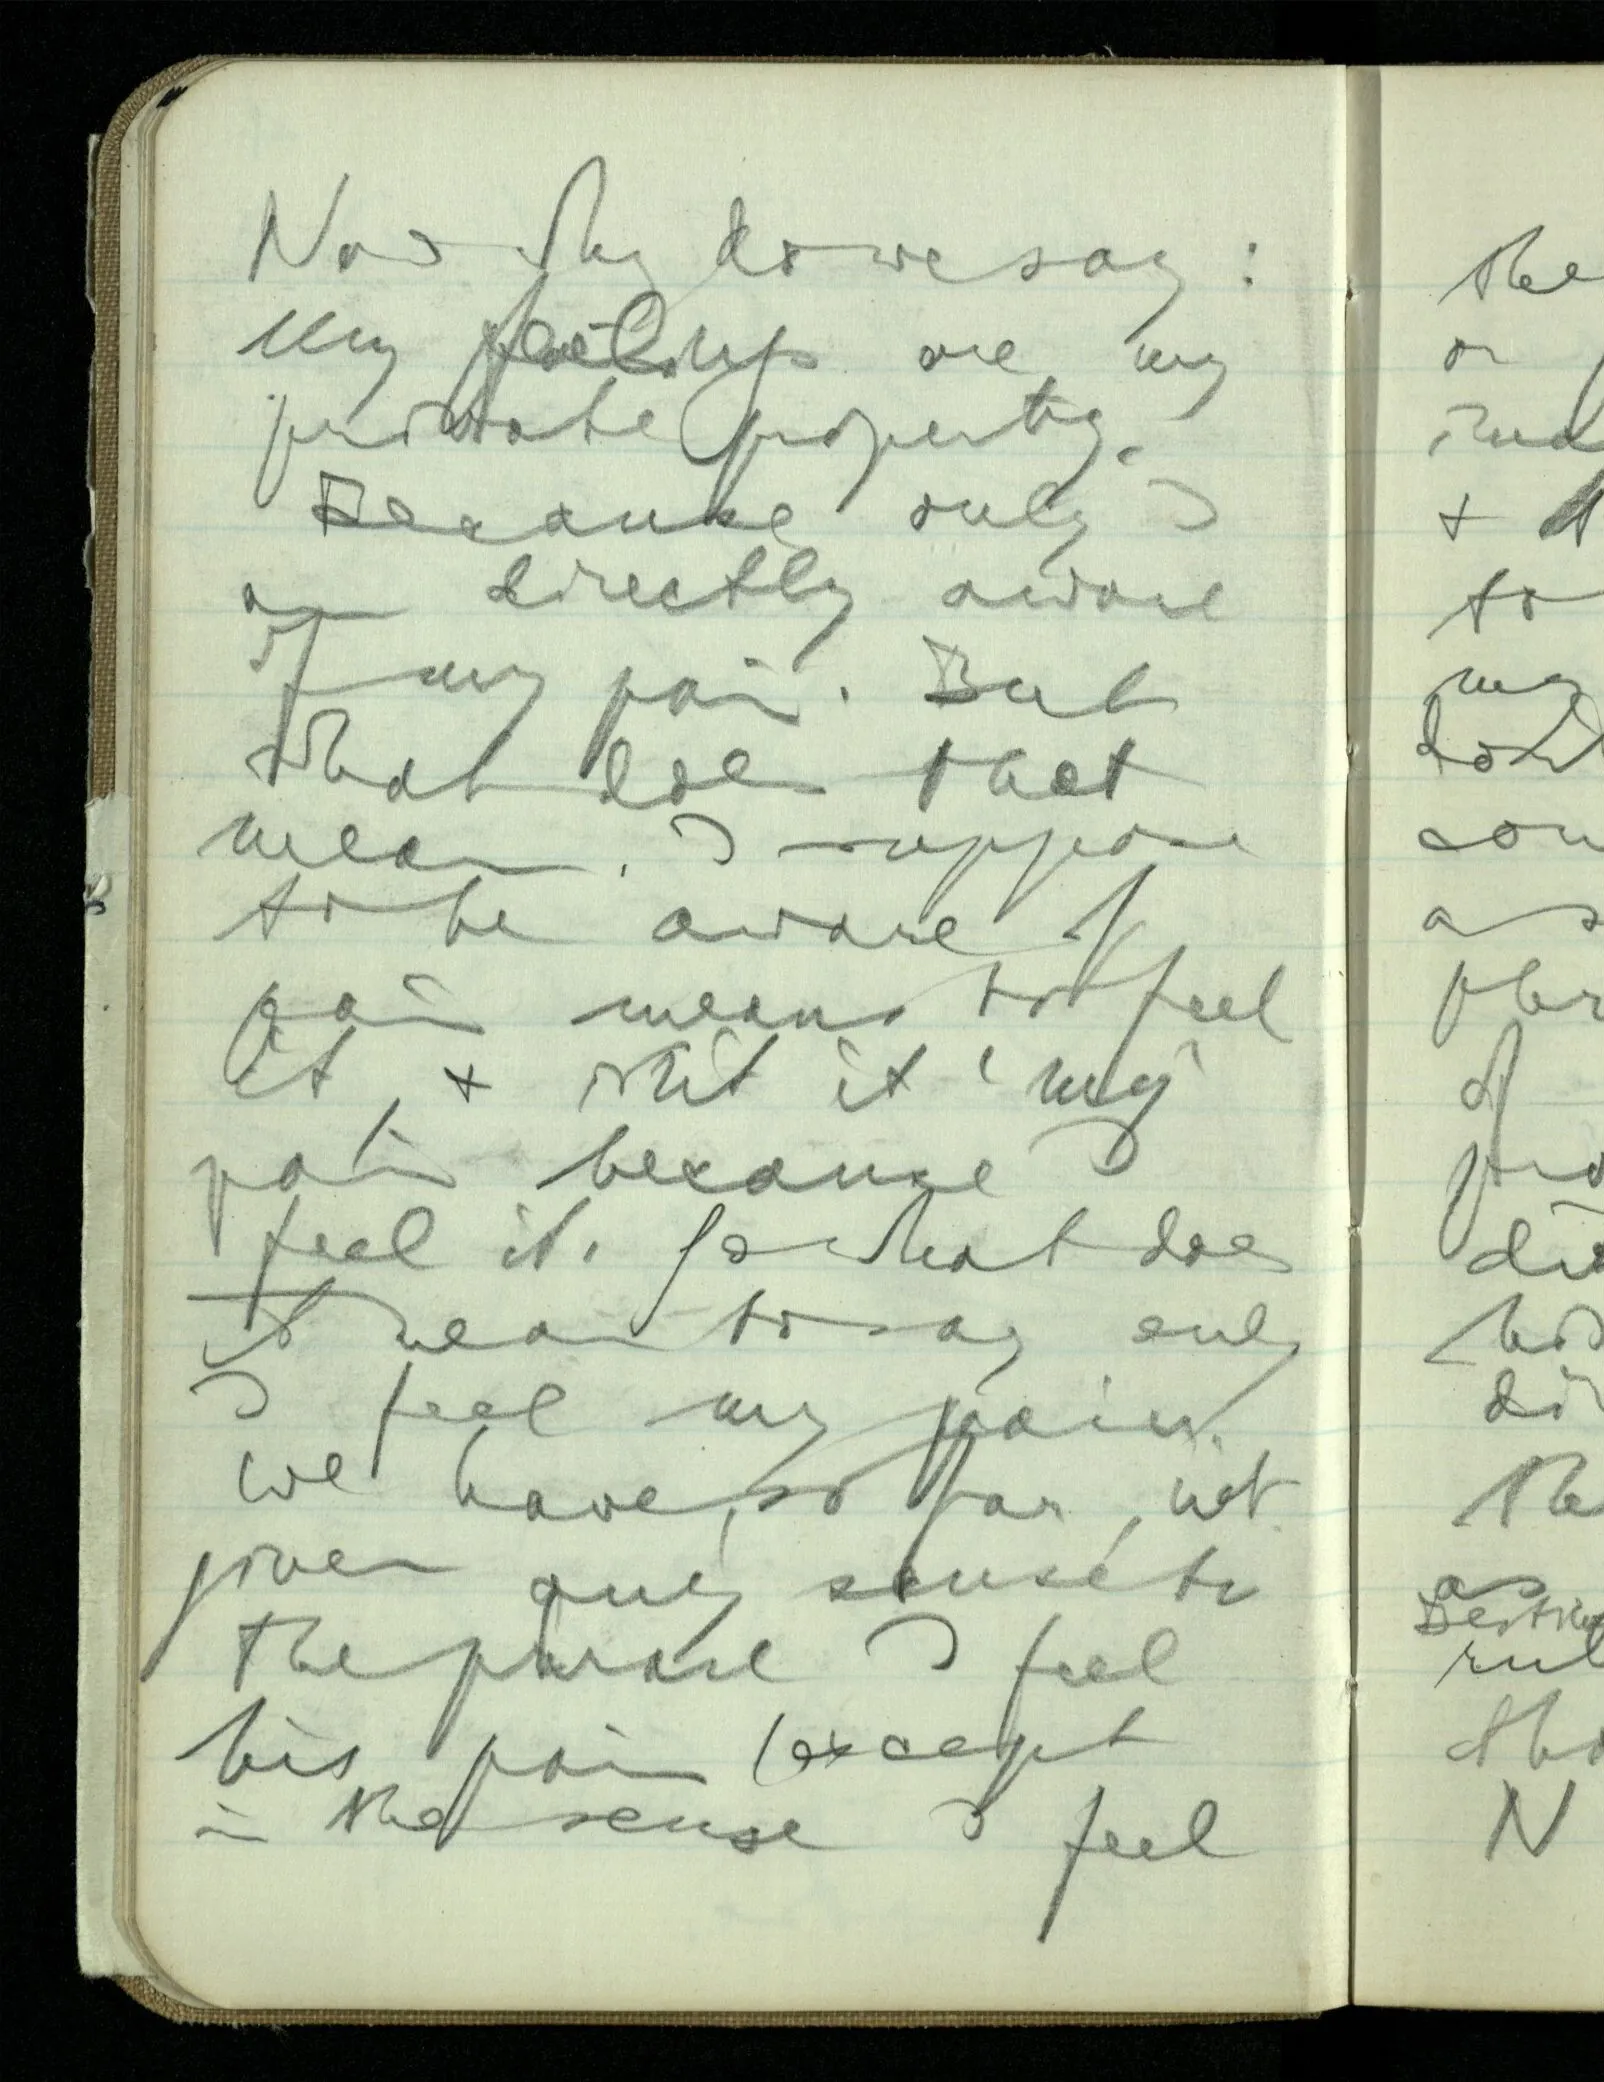 Now why do we say:
My feelings are my
private property.
Because only I
am directly aware
of my pain. But
what does that
mean. I suppose
to be aware of
pain means to feel
it & isn't it 'my'
pain because I
feel it. So what does
it mean to say only
I feel my pain.
we have, so far, not
given any sense to
the phrase I feel
his pain (except
in the sense I feel
the
or
& 
to
my
as
of
the
as
N